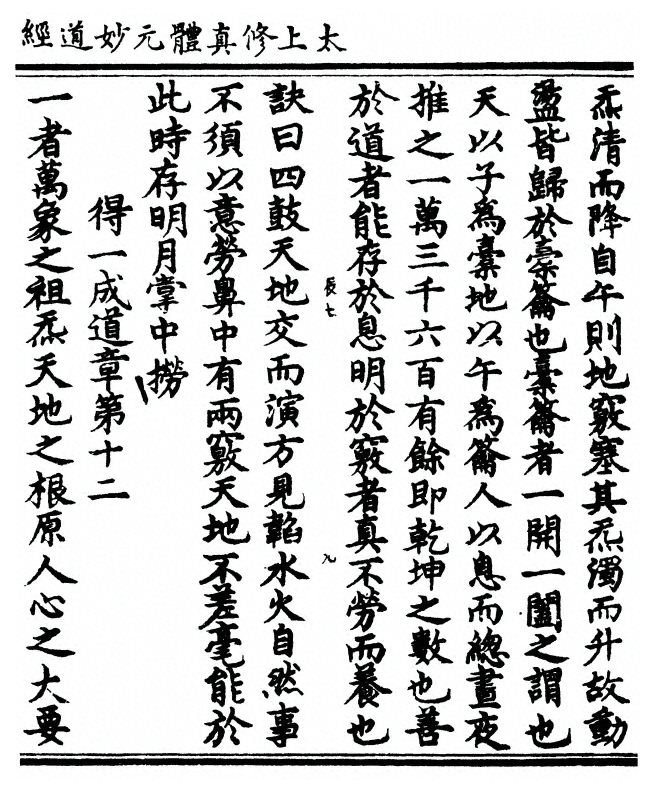 太上修真體元妙道經
炁清而降自午則地竅塞其炁濁而升故動
盪皆歸於橐籥也橐籥者一開一闔之謂也
天以子為橐地以午為籥人以息而總晝夜
推之一萬三千六百有餘即乾坤之數也善
於道者能存於息明於竅者真不勞而養也
辰七
九
訣曰四鼓天地交而演方見韜水火自然事
不須以意勞鼻中有兩竅天地不差毫能於
此時存明月掌中撈
得一成道章第十二
一者萬象之祖炁天地之根原人心之大要